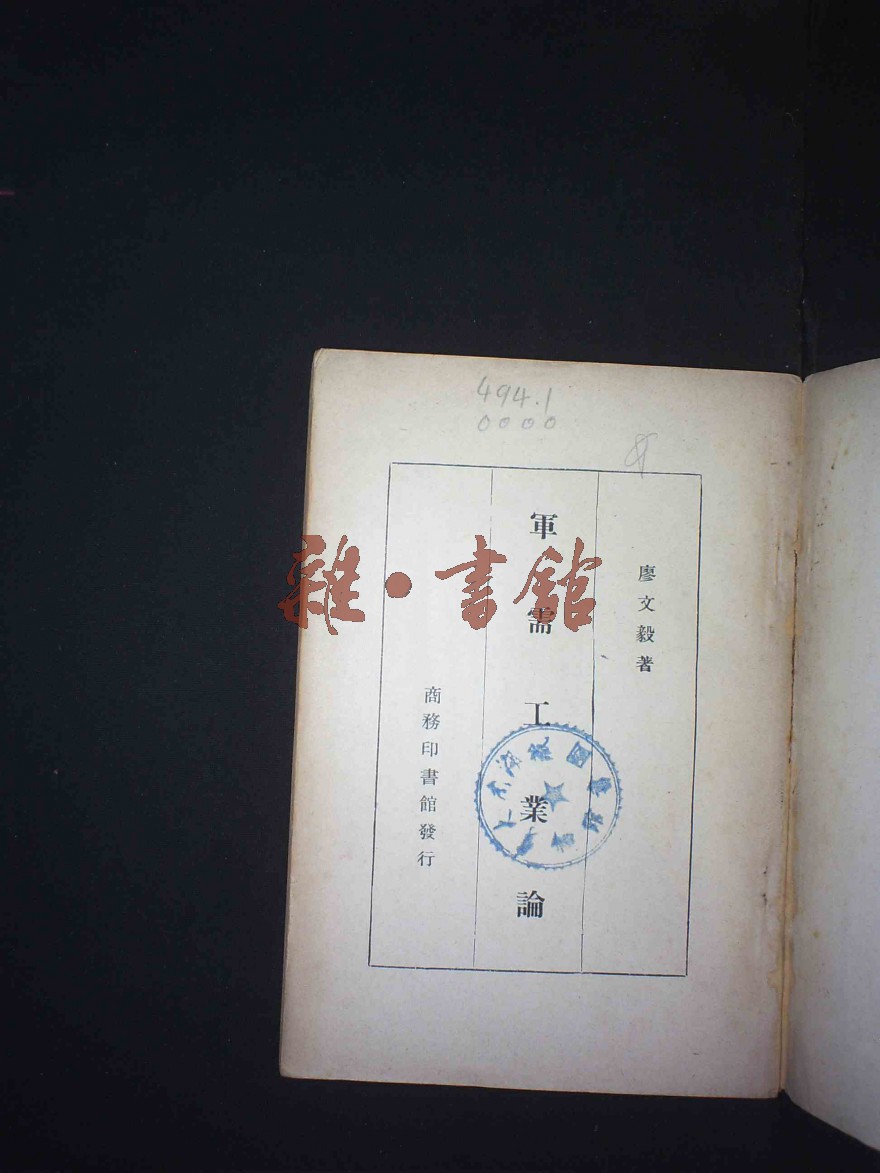 494.1
0000
廖文毅著
軍需工業論
商務印書館發行
雜·書館